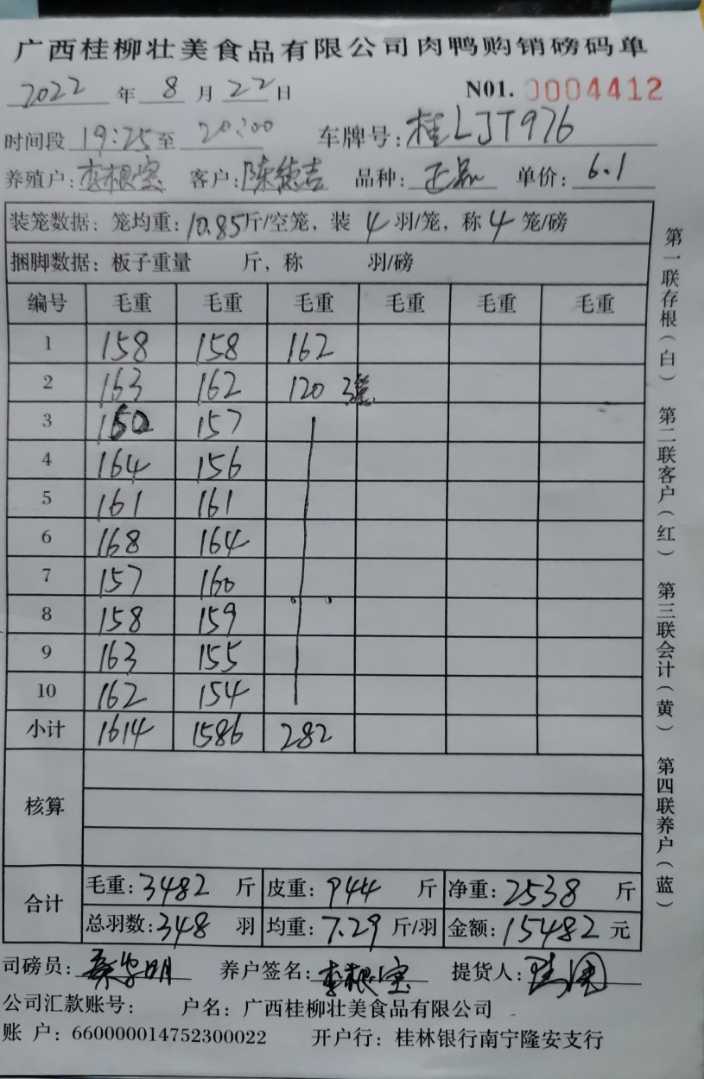 广西桂柳壮美食品有限公司肉鸭购销磅码单
2022 年 8 月 22 日 N01. 0004412
时间段 19:25 至 20:00 车牌号: 桂LJT976
养殖户: 李根宝 客户: 陈德吉 品种: 正品 单价: 6.1
装笼数据: 笼均重: 10.85 斤/空笼, 装 4 羽/笼, 称 4 笼/磅
捆脚数据: 板子重量 斤, 称 羽/磅
编号 毛重 毛重 毛重 毛重 毛重 毛重
1 158 158 162
2 163 162 120 3笼
3 160 157
4 164 156
5 161 161
6 168 164
7 157 160
8 158 159
9 163 155
10 162 154
小计 1614 1586 282
核算
合计 毛重: 3482 斤 皮重: 944 斤 净重: 2538 斤
总羽数: 348 羽 均重: 7.29 斤/羽 金额: 15482 元
司磅员: 养户签名: 李根宝 提货人:
公司汇款账号: 户名: 广西桂柳壮美食品有限公司
账 户: 660000014752300022 开户行: 桂林银行南宁隆安支行
第一联存根(白) 第二联客户(红) 第三联会计(黄) 第四联养户(蓝)